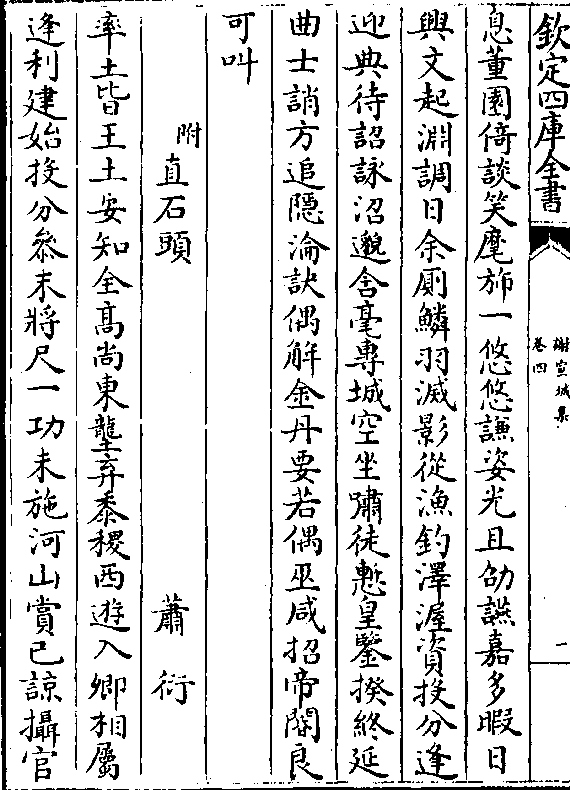 欽定四庫全書
謝宣城集
卷四
一
息董園倚談笑麾斾一悠悠謙姿光且劭讌嘉多暇日
興文起淵調日余厠鱗羽滅影從漁釣澤渥資投分逢
迎典待詔詠沼邈含毫專城空坐嘯徒慙皇鑒揆終延
曲士誚方追隱淪訣偶解金丹要若偶巫咸招帝閽良
可叫
附直石頭
蕭衍
率土皆王土安知全髙尚東壟弃黍稷西遊入卿相屬
逢利建始投分叅末將尺一功未施河山賞已諒攝官